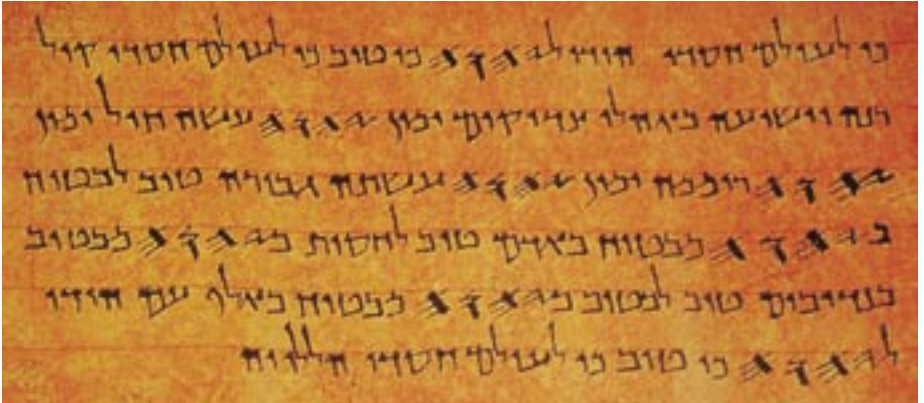 כי לעולם חסדו הודו ל𐤉𐤄𐤅𐤄 כי טוב כי לעולם חסדו קול
רנה וישועה באהלי צדיקים ימין 𐤉𐤄𐤅𐤄 עשה חיל ימין
𐤉𐤄𐤅𐤄 רוממה ימין 𐤉𐤄𐤅𐤄 עשתה גבורה טוב לבטוח
ב𐤉𐤄𐤅𐤄 מבטוח באדם טוב לחסות ב𐤉𐤄𐤅𐤄 מבטוב
בנדיבים טוב לבטוב ב𐤉𐤄𐤅𐤄 מבטוח באלף עם הודו
ל𐤉𐤄𐤅𐤄 כי טוב כי לעולם חסדו הללויה